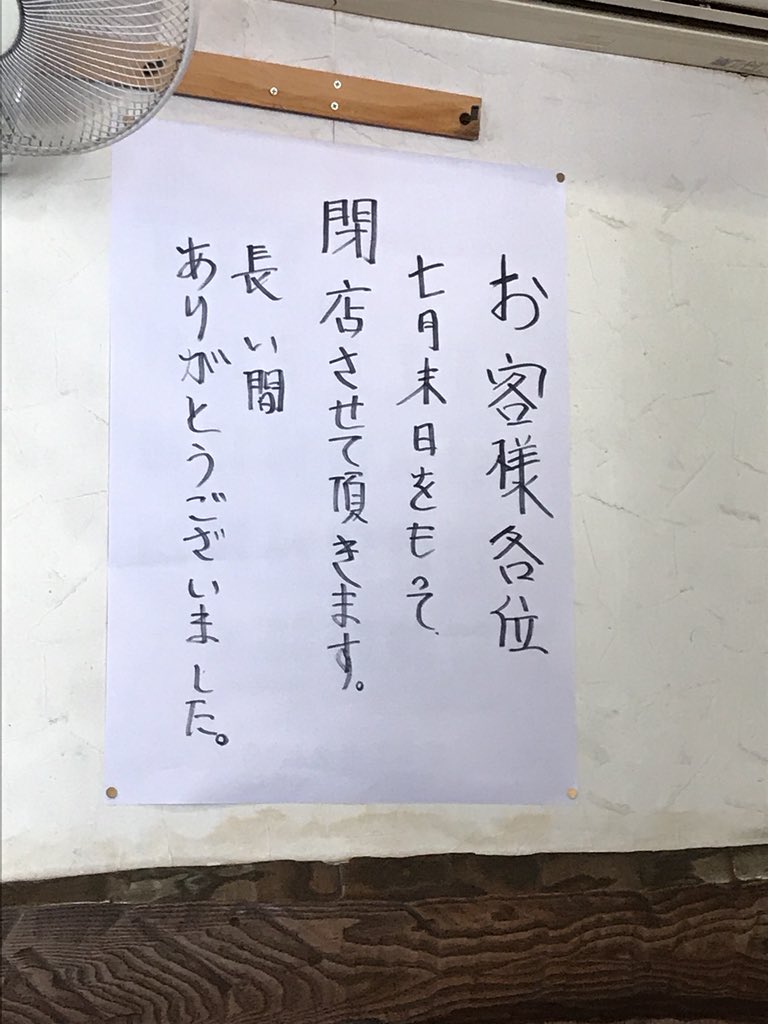 お客様各位
七月末日をもって
閉店させて頂きます。
長い間
ありがとうございました。